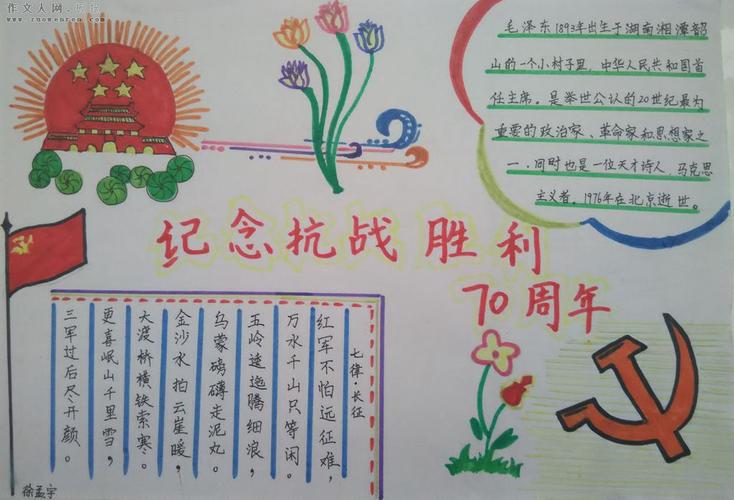 作文人网·板报
www.zuowenren.com
毛泽东1893年出生于湖南湘潭韶
山的一个小村子里，中华人民共和国首
任主席。是举世公认的20世纪最为
重要的政治家、革命家和思想家之
一，同时也是一位天才诗人，马克思
主义者，1976年在北京逝世。
纪念抗战胜利
70周年
七律·长征
红军不怕远征难，
万水千山只等闲。
五岭逶迤腾细浪，
乌蒙磅礴走泥丸。
金沙水拍云崖暖，
大渡桥横铁索寒。
更喜岷山千里雪，
三军过后尽开颜。
徐孟宇